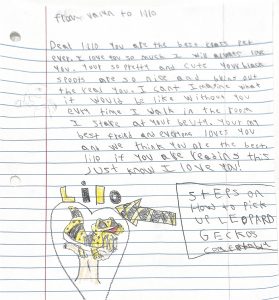 to lilo
Deal lilo You are the best class pet
ever. I love you so much I will always love
You. Your so pretty and cute Your black
spots are so nice and brins out
the real you. I cant Imagine what
it would be like without you
every time I walk in the room
I stare at your beauty. Your my
best friend and everyone loves you
and we think you are the best
lilo if you are reading this
Just know I love you!
Lilo
STEPS ON
How to Pick
UP LEOPARD
Geckos